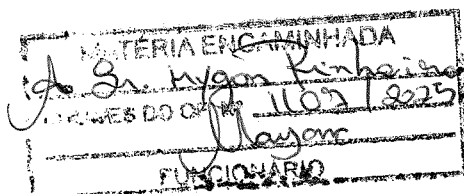 MATÉRIA ENCAMINHADA
A Sr. Hygor Pinheiro
ATRAVÉS DO OF. Nº 1107 / 2025
Mayara
FUNCIONÁRIO